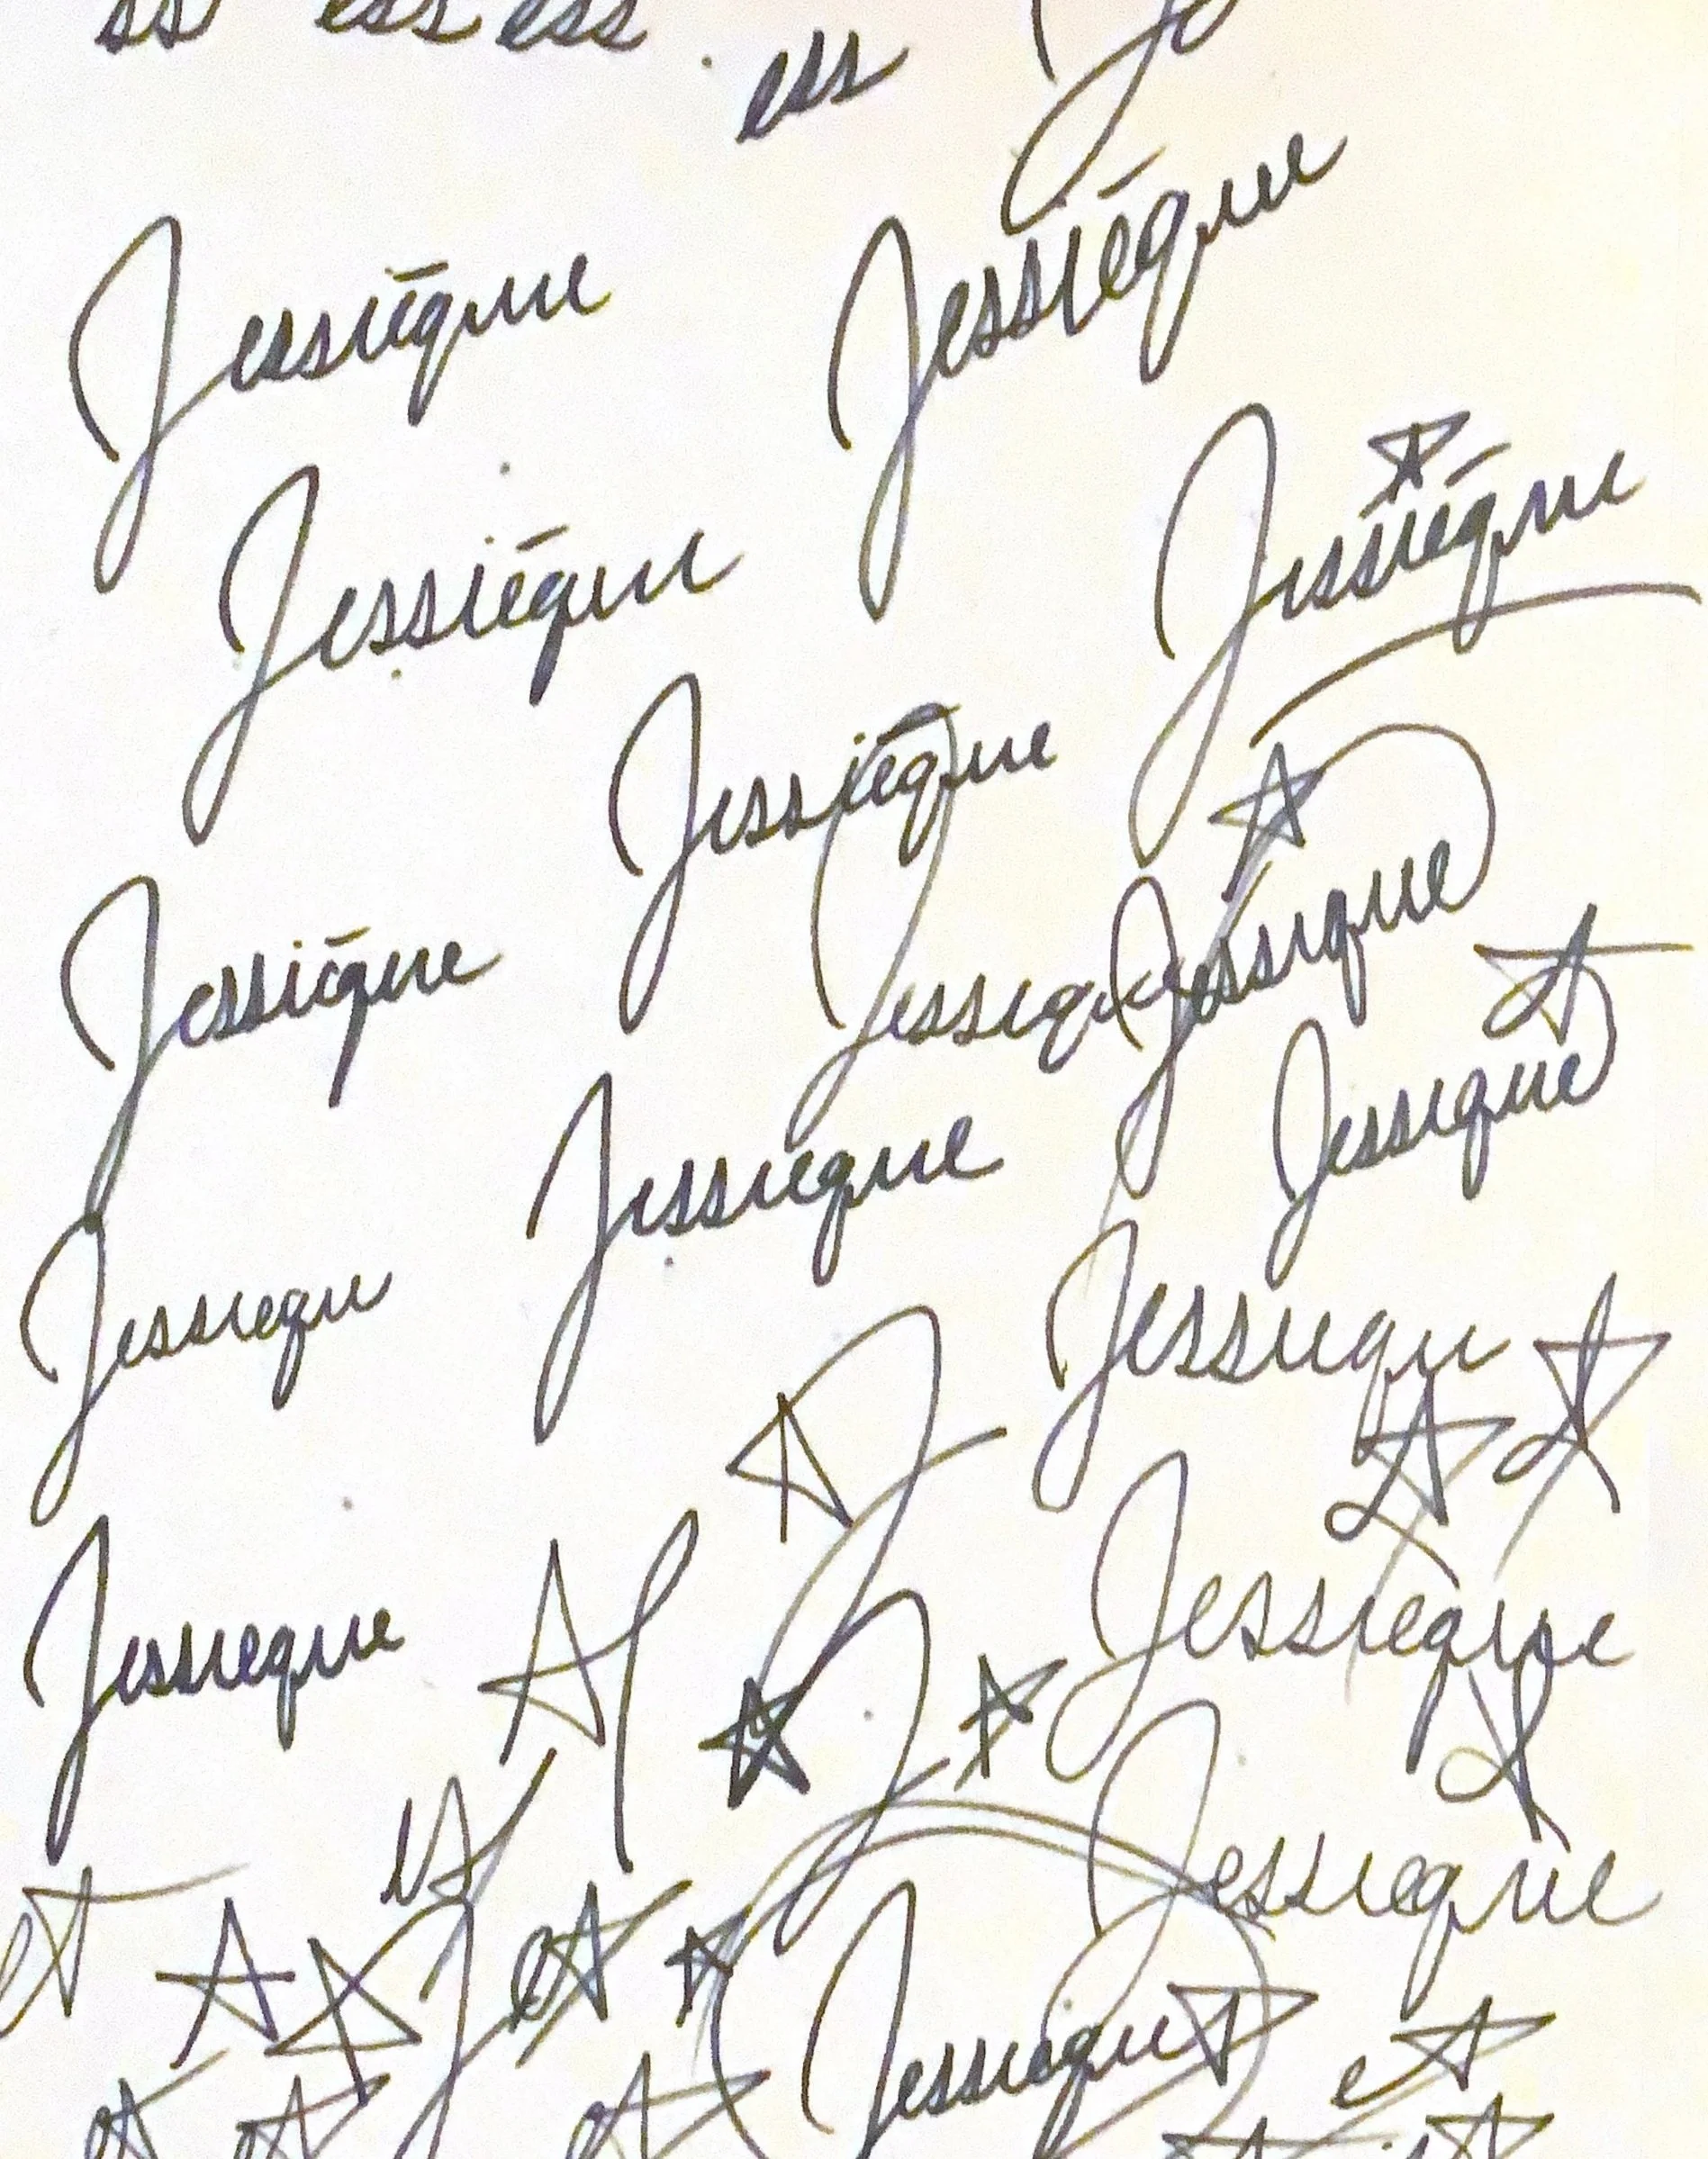 ss ess ess
ess
Jessiēque
Jessiēque
Jessiēque
Jessiēque
Jessiēque
Jessiēque
Jessique
Jessique
Jessieque
Jessique
Jessiequ
Jessiequ
Jessieque
Jessieque
Jessieque
Jessiequ
e